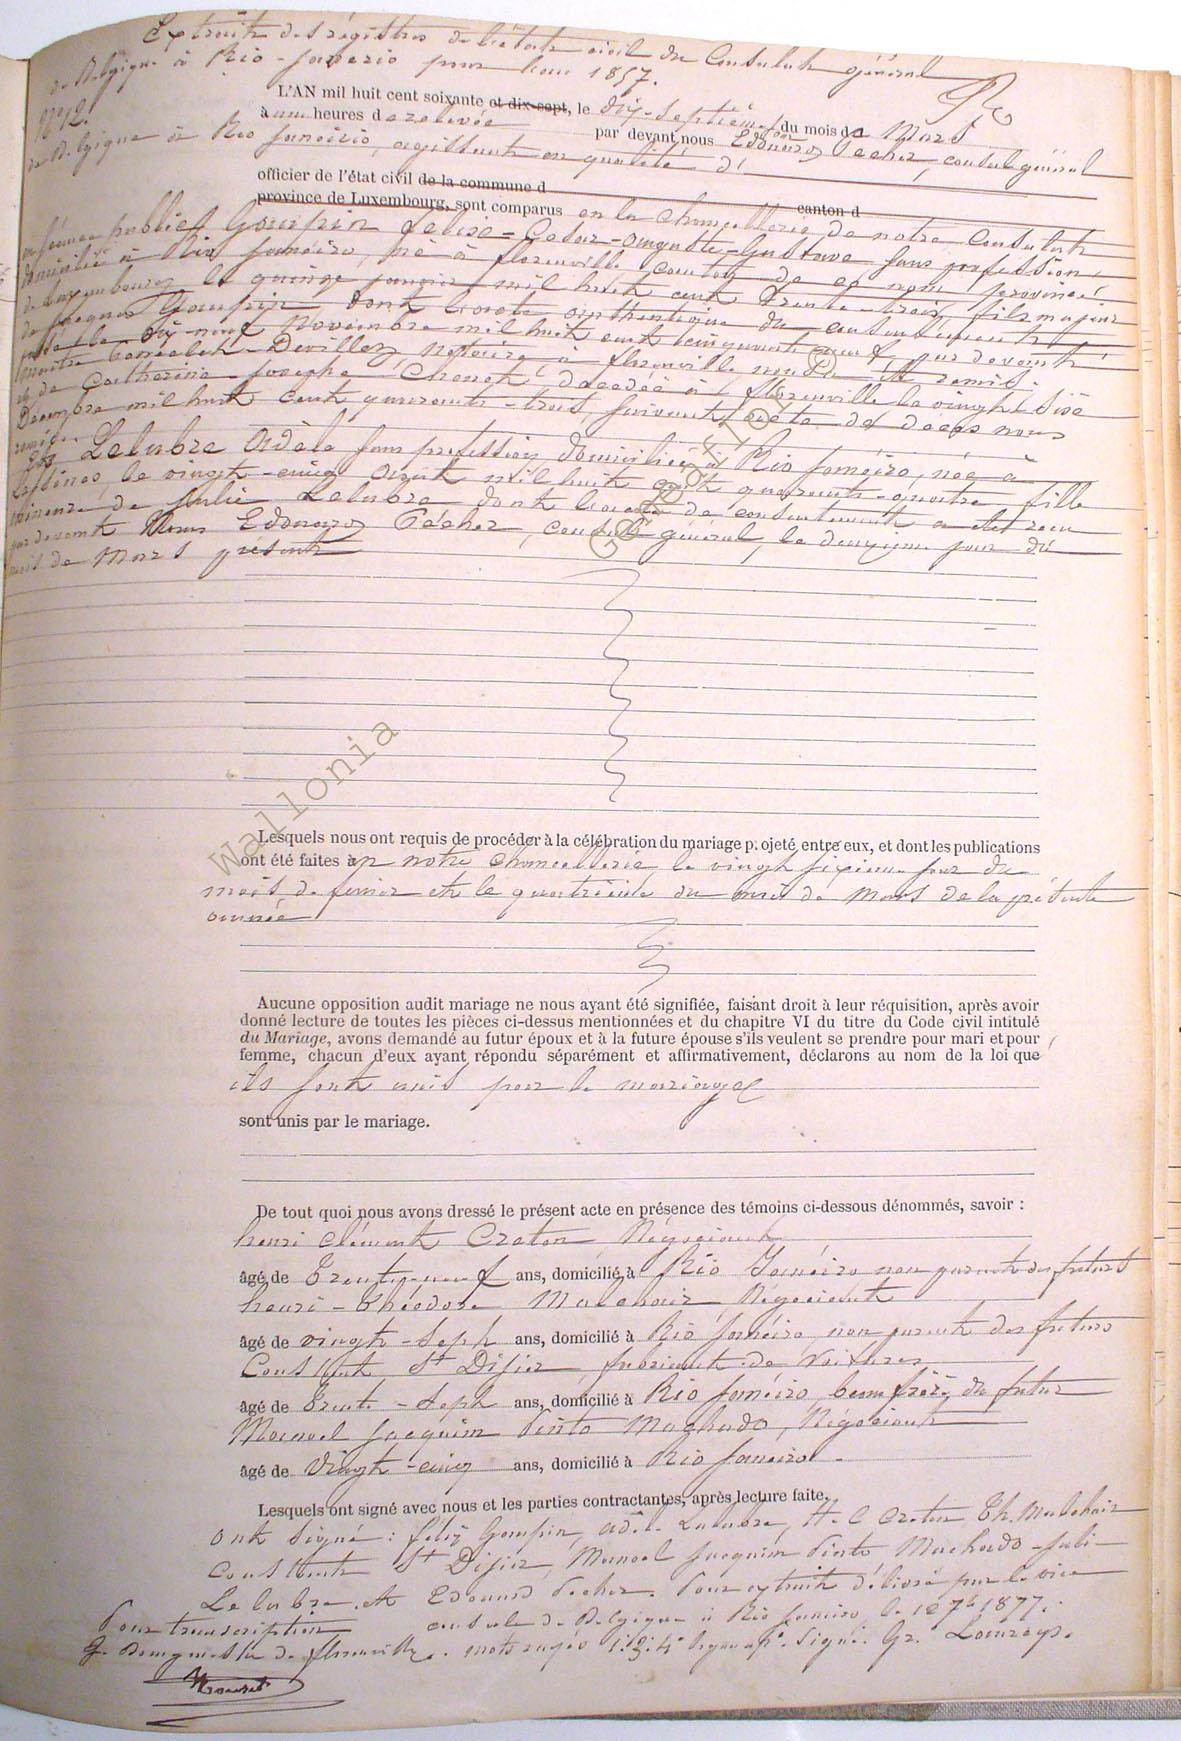 Extrait des régistres de l'état civil du Consulat général
de Belgique à Rio-Janeiro pour l'an 1857.
N° 12.
L'AN mil huit cent soixante et dix-sept, le dix-septième jour du mois de Mars
à une heures de relevée par devant nous Edouard Pecher, consul général
de Belgique à Rio Janeiro, agissant en qualité d'
officier de l'état civil de la commune d canton d
province de Luxembourg, sont comparus en la chancellerie de notre Consulat
en séance publique Goupin Felix-Cesar-Auguste-Gustave sans profession,
domicilié à Rio Janeiro, né à florenville, comton de ce nom, province
de Luxembourg le quinze janvier mil huit cent trente-trois, fils majeur
de Jacques Goupin dont l'acte authentique du consentement
passé le dix-neuf Novembre mil huit cent cinquante neuf par devant
maître Devillez Notaire à florenville, nous a été remis;
et de Catherine-Josephe Chenot, décedée à florenville le vingt six
Décembre mil huit cent quarante-trois, suivant acte de décès nous
remis.
Et Lelubre Adèle sans profession domiciliée à Rio Janeiro, née à
Lessines, le vingt-cinq Août mil huit cent quarante-quatre, fille
mineure de Julie Lelubre dont l'acte de consentement a été reçu
par devant Nous Edouard Pécher, consul général, le deuxième jour du
mois de Mars présent
Lesquels nous ont requis de procéder à la célébration du mariage projeté entre eux, et dont les publications
ont été faites à notre chancellerie le vingt sixième jour du
mois de février et le quatrième du mois de Mars de la présente
année
Aucune opposition audit mariage ne nous ayant été signifiée, faisant droit à leur réquisition, après avoir
donné lecture de toutes les pièces ci-dessus mentionnées et du chapitre VI du titre du Code civil intitulé
du Mariage, avons demandé au futur époux et à la future épouse s'ils veulent se prendre pour mari et pour
femme, chacun d'eux ayant répondu séparément et affirmativement, déclarons au nom de la loi que
ils sont unis par le mariage
sont unis par le mariage.
De tout quoi nous avons dressé le présent acte en présence des témoins ci-dessous dénommés, savoir :
henri Clément Craton, Négociant
âgé de Trente-neuf ans, domicilié à Rio Janéiro, non parent des futurs
henri-Théodore Malchair Négociant
âgé de vingt-sept ans, domicilié à Rio Janéiro, non parent des futurs
Constant St Dizier, fabricant de Voitures
âgé de Trente-Sept ans, domicilié à Rio Janéiro, beau frère du futur
Manoel Jacquim Pinto Machado, Négociant
âgé de Vingt-cinq ans, domicilié à Rio Janeiro.
Lesquels ont signé avec nous et les parties contractantes, après lecture faite.
ont signé : félix Goupin, Adèle Lelubre, H. C Craton Th. Malchair
Constant St Dizier, Manoel Jacquim Pinto Machado - Juli-
Lelubre et Edouard Pecher. Pour extrait délivré par le vice
consul de Belgique à Rio Janeiro, le 1877.
Pour transcription
de florenville. mots rayés Signé: Gr.
wallonia